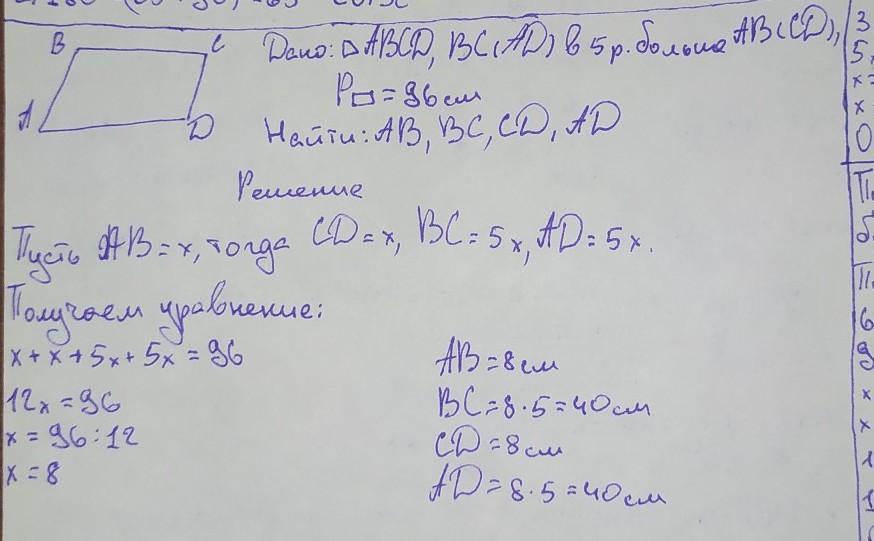 B C
A D
Дано: ▱ ABCD, BC(AD) в 5 р. больше AB(CD),
P▱ = 96 см
Найти: AB, BC, CD, AD
Решение
Пусть AB = x, тогда CD = x, BC = 5x, AD = 5x.
Получаем уравнение:
x + x + 5x + 5x = 96
12x = 96
x = 96 : 12
x = 8
AB = 8 см
BC = 8 · 5 = 40 см
CD = 8 см
AD = 8 · 5 = 40 см